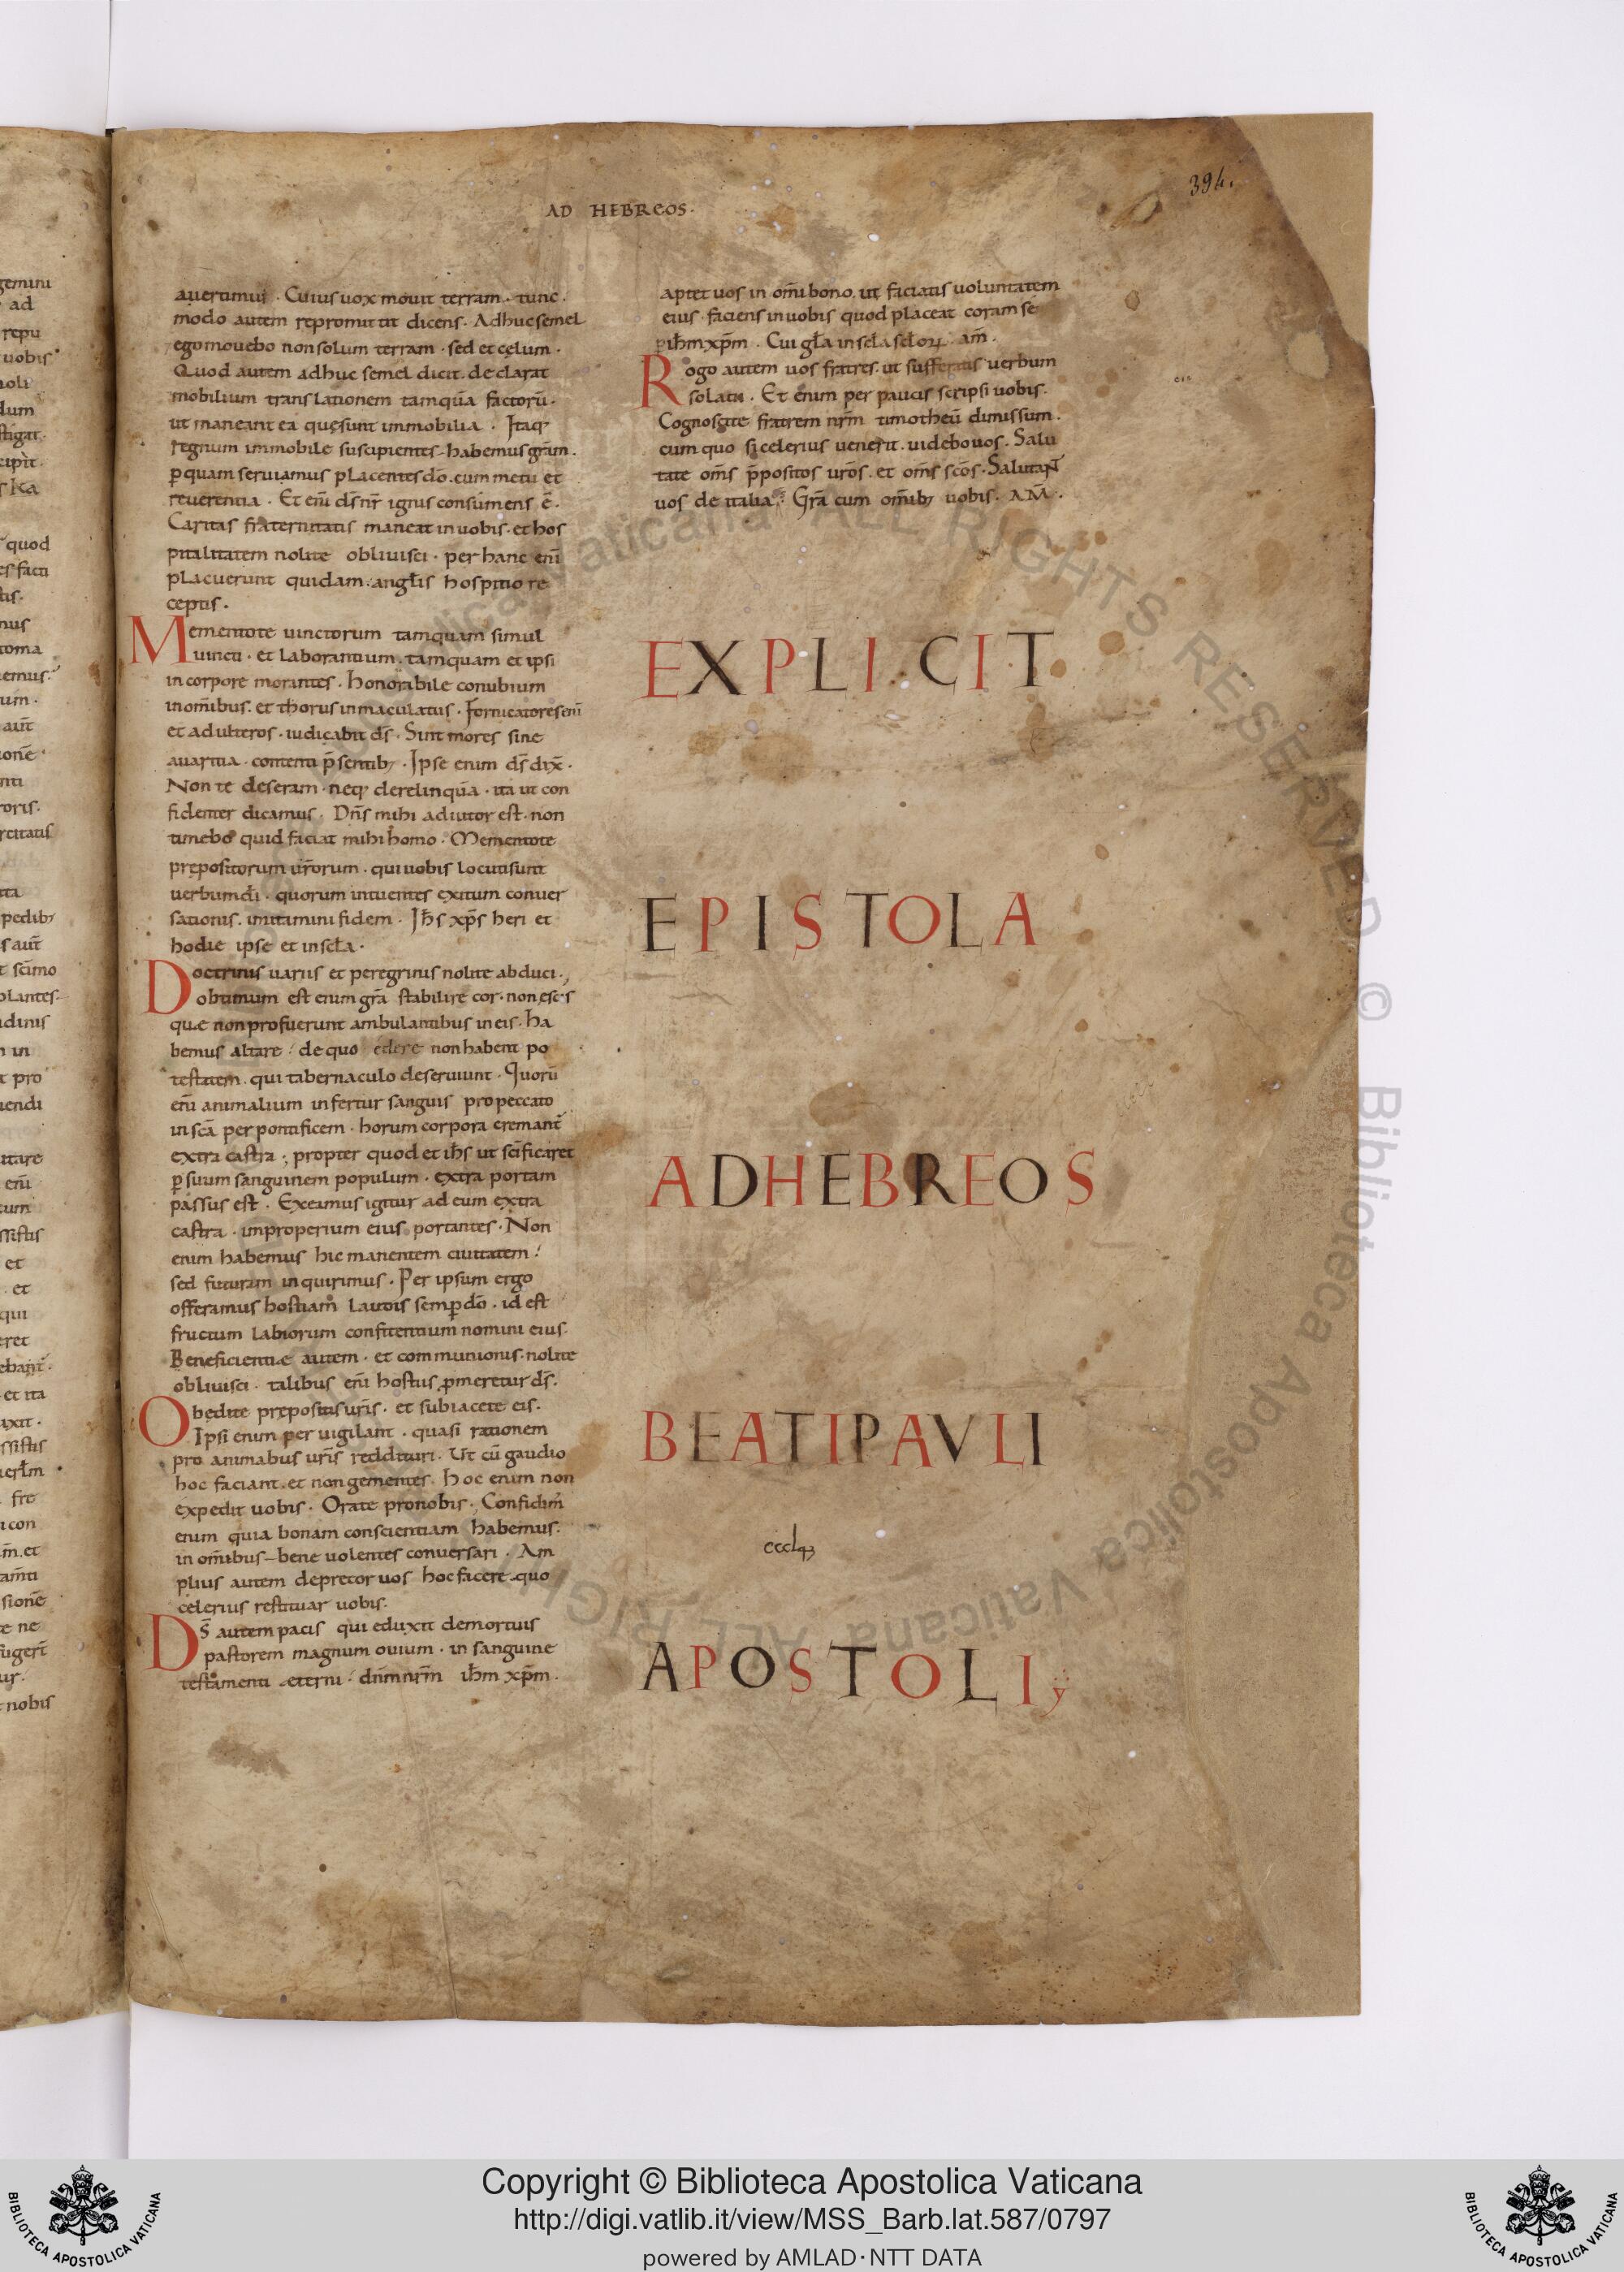 AD HEBREOS.
394.
auertimus. Cuius uox mouit terram. tunc.
modo autem repromittit dicens. Adhuc semel
ego mouebo non solum terram. sed et cęlum.
Quod autem adhuc semel dicit. declarat
mobilium translationem tamquā factorū.
ut maneant ea quę sunt immobilia. Itaq;
regnum immobile suscipientes. habemus grām.
ꝑ quam seruiamus placentes dō. cum metu et
reuerentia. Et eni̅ ds̅ nr̅ ignis consumens ē.
Caritas fraternitatis maneat in uobis. et hos
pitalitatem nolite obliuisci. per hanc eni̅
placuerunt quidam. angłis hospitio re
ceptis.
Mementote uinctorum tamquam simul
uincti. et laborantium. tamquam et ipsi
in corpore morantes. Honorabile conubium
in om̅ibus. et thorus inmaculatus. Fornicatores eni̅
et adulteros. iudicabit ds̅. Sint mores sine
auaritia. contenti p̅sentib;. Ipse enim ds̅ dix̅.
Non te deseram. neq; derelinquā. ita ut con
fidenter dicamus. Dn̅s mihi adiutor est. non
timebo quid faciat mihi homo. Mementote
prępositorum ur̅orum. qui uobis locuti sunt
uerbum di̅. quorum intuentes exitum conuer
sationis. imitamini fidem. Ihs̅ xp̅s heri et
hodie ipse et in scła.
Doctrinis uariis et peregrinis nolite abduci.
obtimum est enim gra̅ stabilire cor. non escis
quæ non profuerunt ambulantibus in eis. Ha
bemus altare. de quo edere non habent po
testatem. qui tabernaculo deseruiunt. Quorū
eni̅ animalium infertur sanguis pro peccato
in sca̅ per pontificem. horum corpora cremant̅
extra castra. propter quod et ihs̅ ut sc̅ificaret
ꝑ suum sanguinem populum. extra portam
passus est. Exeamus igitur ad eum extra
castra. improperium eius portantes. Non
enim habemus hic manentem ciuitatem.
sed futuram inquirimus. Per ipsum ergo
offeramus hostiam laudis semꝑ dō. id est
fructum labiorum confitentium nomini eius.
Beneficientiæ autem. et communionis. nolite
obliuisci. talibus eni̅ hostiis ꝓmeretur ds̅.
Obedite prępositis uri̅s. et subiacete eis.
Ipsi enim peruigilant. quasi rationem
pro animabus uri̅s reddituri. Ut cū gaudio
hoc faciant. et non gementes. Hoc enim non
expedit uobis. Orate pro nobis. Confidim̅
enim quia bonam conscientiam habemus.
in om̅ibus bene uolentes conuersari. Am
plius autem deprecor uos hoc facere. quo
celerius restituar uobis.
Ds̅ autem pacis qui eduxit de mortuis
pastorem magnum ouium. in sanguine
testamenti æterni. dn̅m nr̅m ihm̅ xp̅m.
aptet uos in om̅i bono. ut faciatis uoluntatem
eius. faciens in uobis quod placeat coram se
ꝑ ihm̅ xp̅m. Cui gła in scła scłoꝝ. am̅.
Rogo autem uos fratres. ut sufferatis uerbum
solatii. Et enim per paucis scripsi uobis.
Cognoscite fratrem nr̅m timotheū dimissum.
cum quo si celerius uenerit. uidebo uos. Salu
tate om̅s p̅positos uro̅s. et om̅s sco̅s. Salutant
uos de italia. Gra̅ cum om̅ib; uobis. AM̅.
EXPLICIT
EPISTOLA
AD HEBREOS
BEATI PAVLI
APOSTOLI;
Copyright © Biblioteca Apostolica Vaticana
http://digi.vatlib.it/view/MSS_Barb.lat.587/0797
powered by AMLAD·NTT DATA
BIBLIOTECA APOSTOLICA VATICANA
BIBLIOTECA APOSTOLICA VATICANA